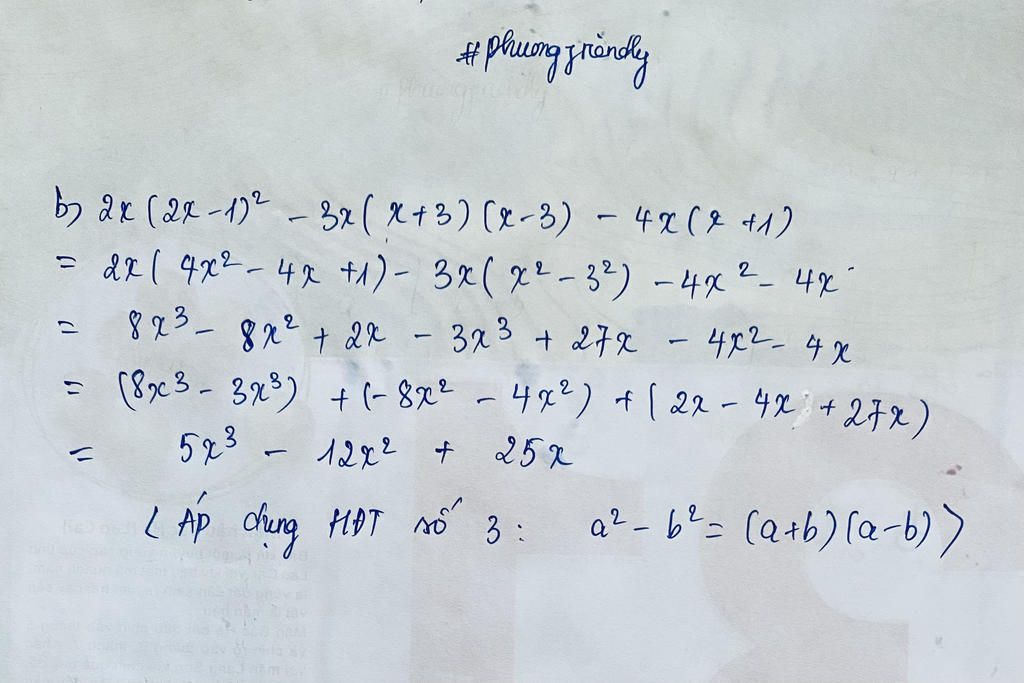 #phuongfriendly
b) 2x(2x-1)² - 3x(x+3)(x-3) - 4x(x+1)
= 2x(4x² - 4x +1) - 3x(x² - 3²) - 4x² - 4x
= 8x³ - 8x² + 2x - 3x³ + 27x - 4x² - 4x
= (8x³ - 3x³) + (-8x² - 4x²) + (2x - 4x + 27x)
= 5x³ - 12x² + 25x
< Áp dụng HĐT số 3: a² - b² = (a+b)(a-b)>